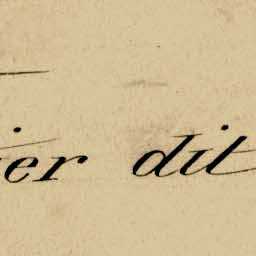 ier dit